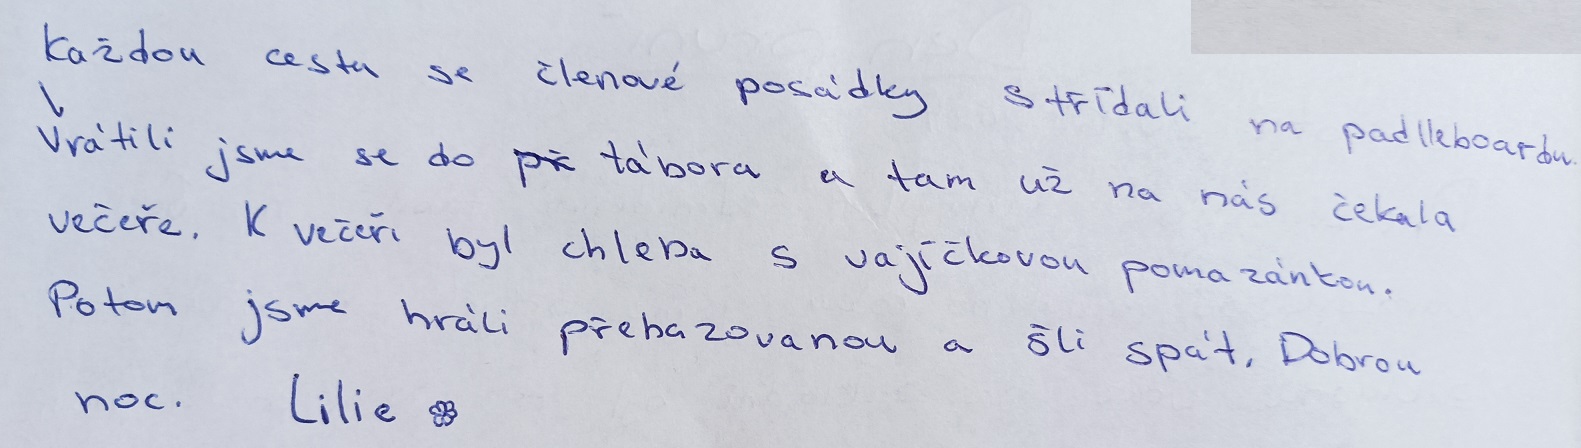 Každou cestu se členové posádky střídali na padlleboardu.
Vrátili jsme se do tábora a tam už na nás čekala
večeře. K večeři byl chleba s vajíčkovou pomazánkou.
Potom jsme hráli přehazovanou a šli spát. Dobrou
noc. Lilie